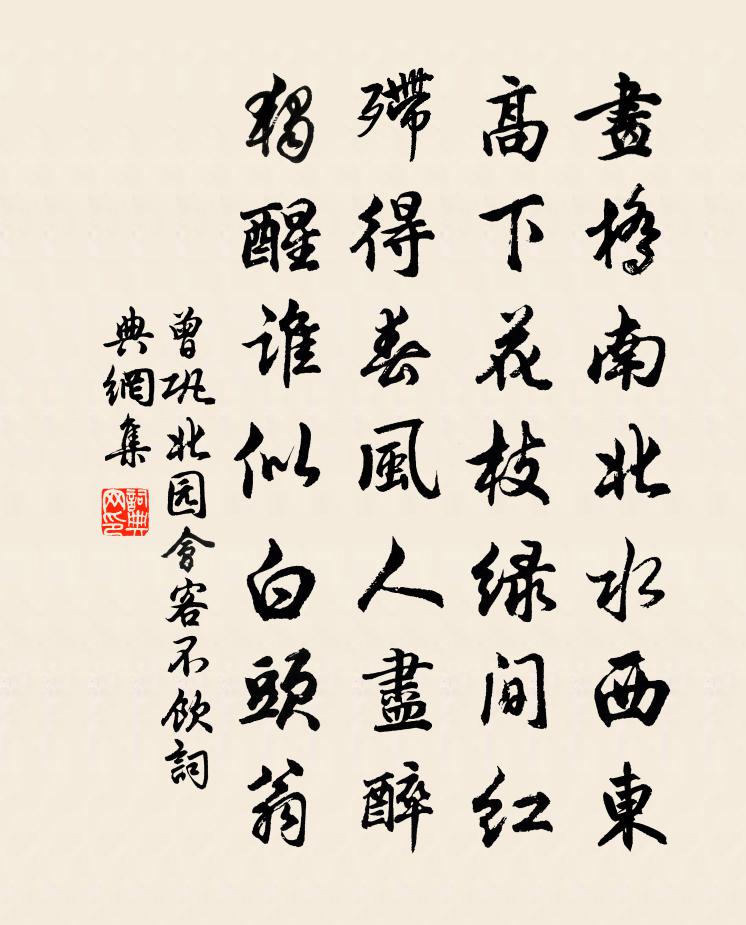 畫橋南北水西東
高下花枝绿間红
殢得春風人盡醉
獨醒谁似白頭翁
曾巩北园會客不飲詞
典網集
詞典网印